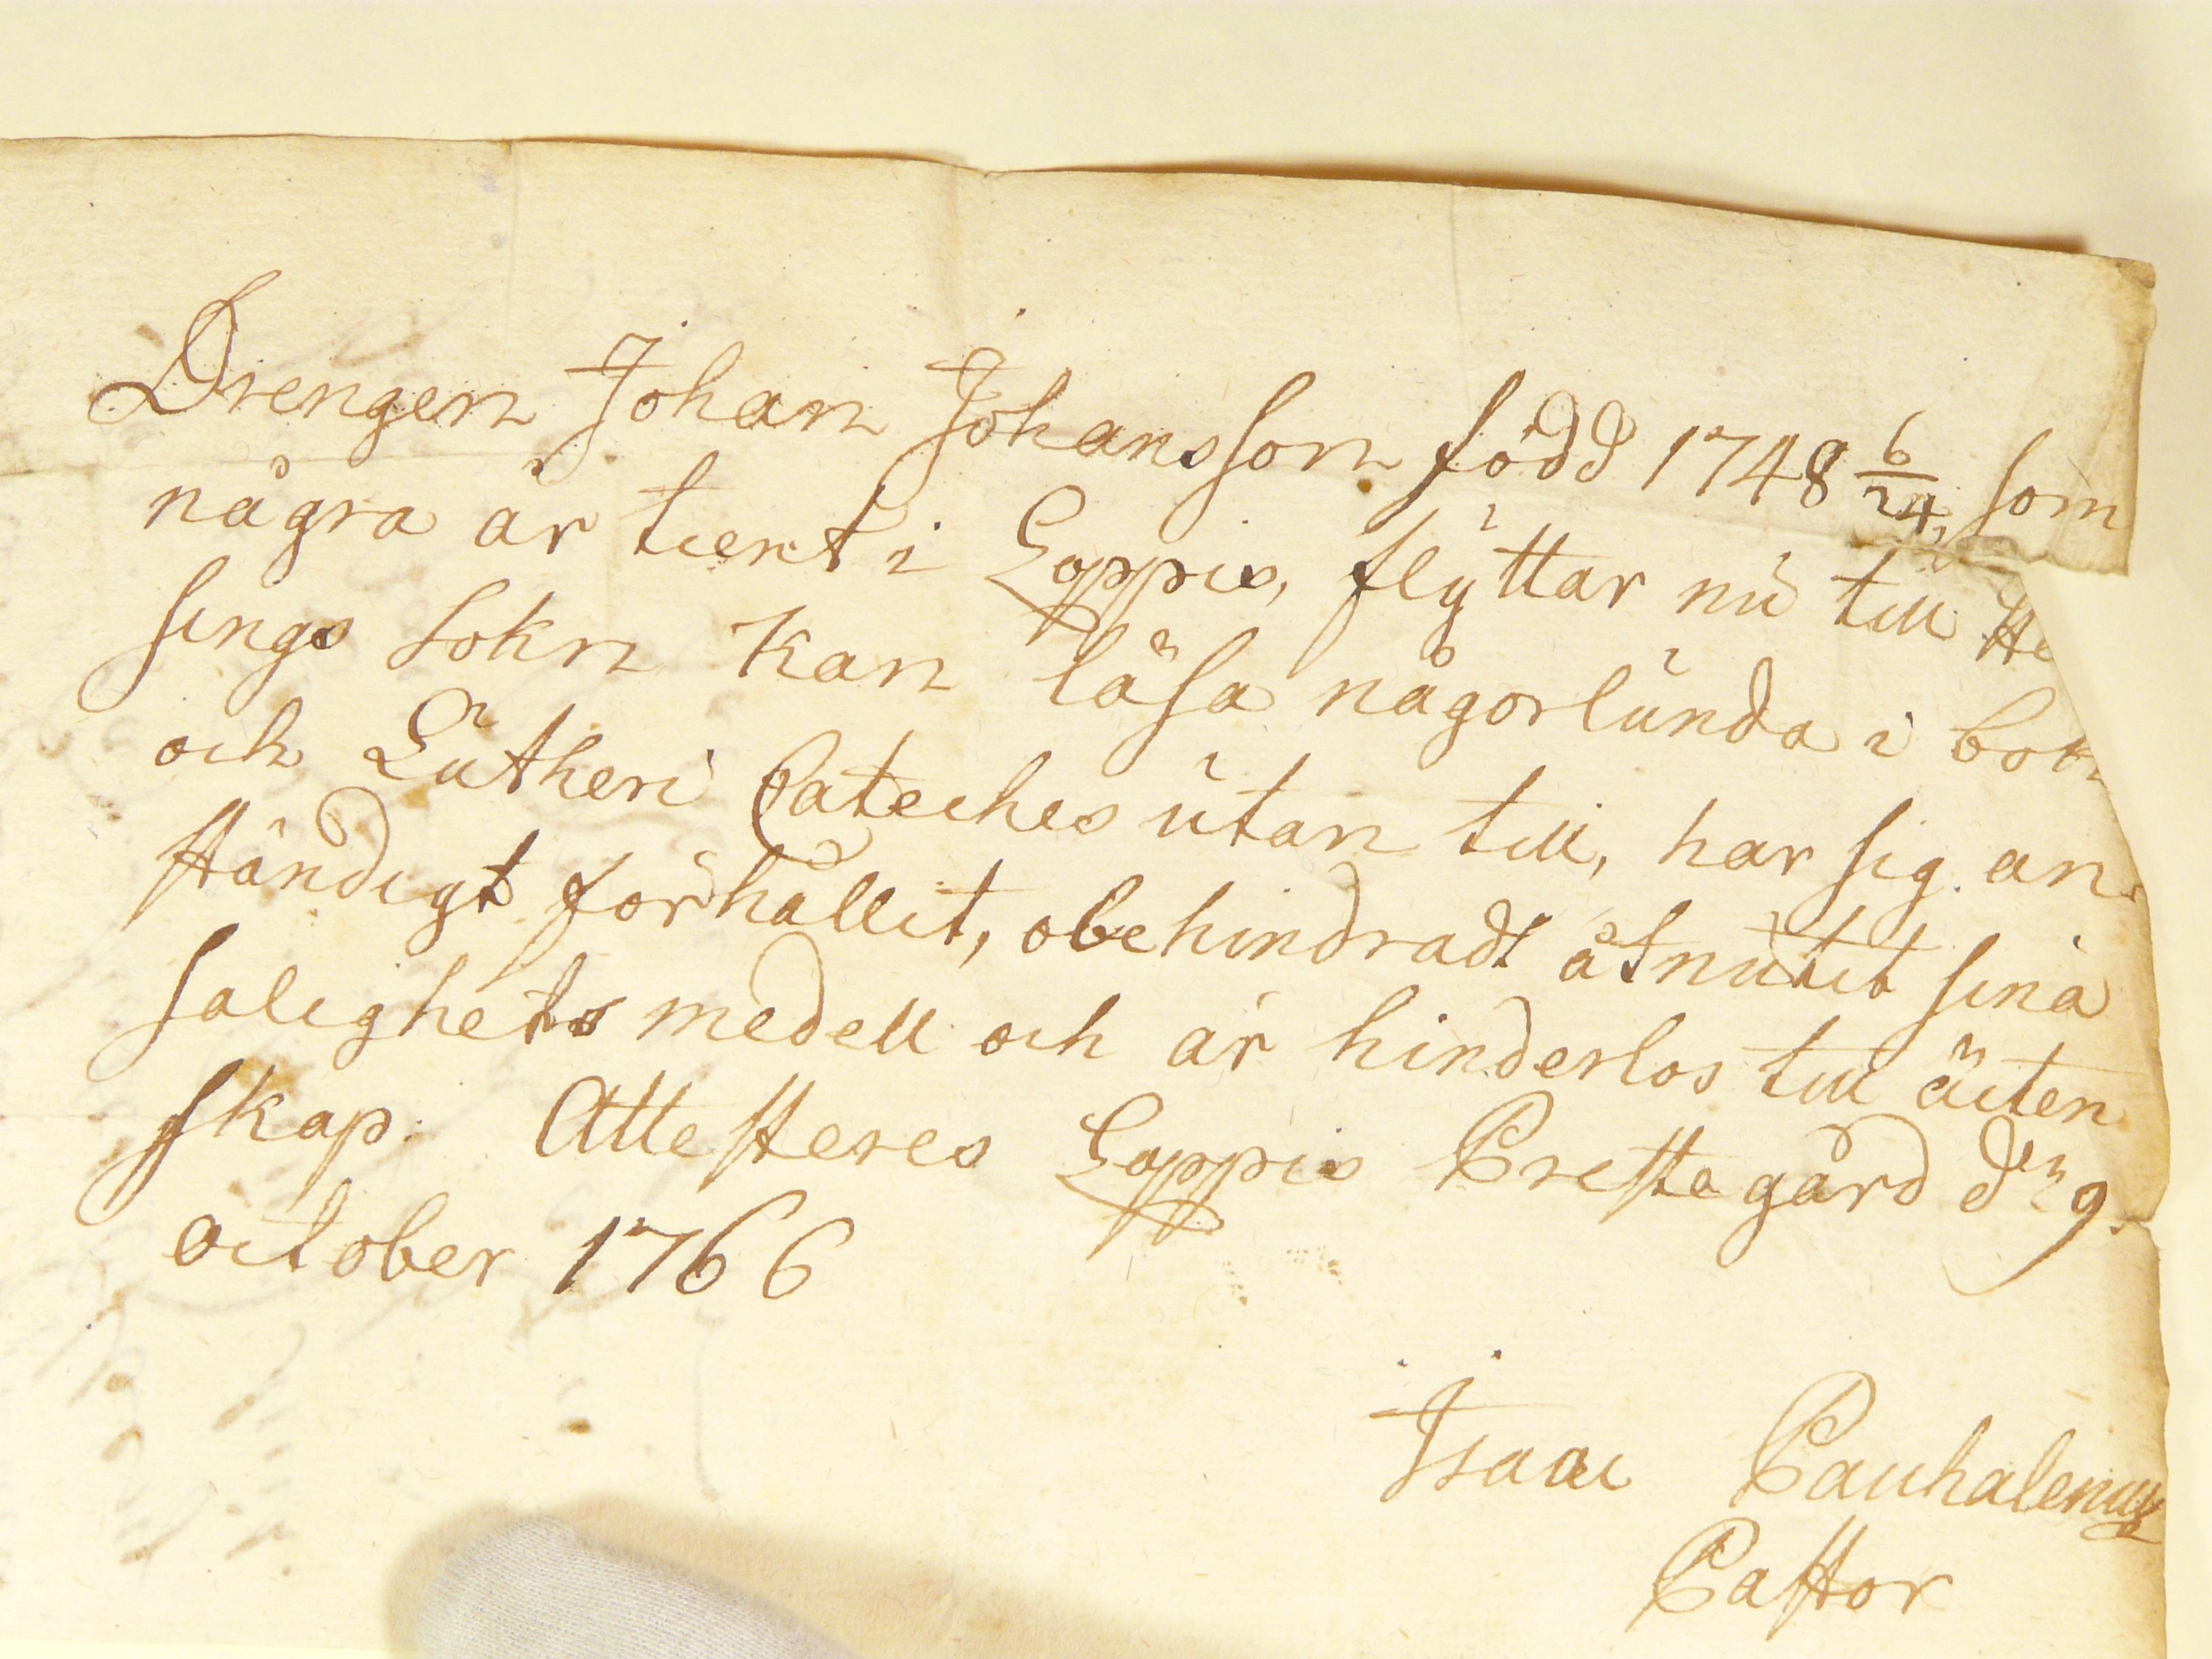 Drengen Johan Johansson född 1748 6/24, som
några år tient i Loppis, flyttar nu till He
sings Sokn kan läsa någorlunda i bok
och Lutheri Cateches utan till, har sig an
ständigt förhållit, obehindradt åtnutit sina
salighets medell och är hinderlos till äcten
skap. Attesteres Loppis Prestegård den 9.
october 1766
Isaac Pauhalenius
Pastor